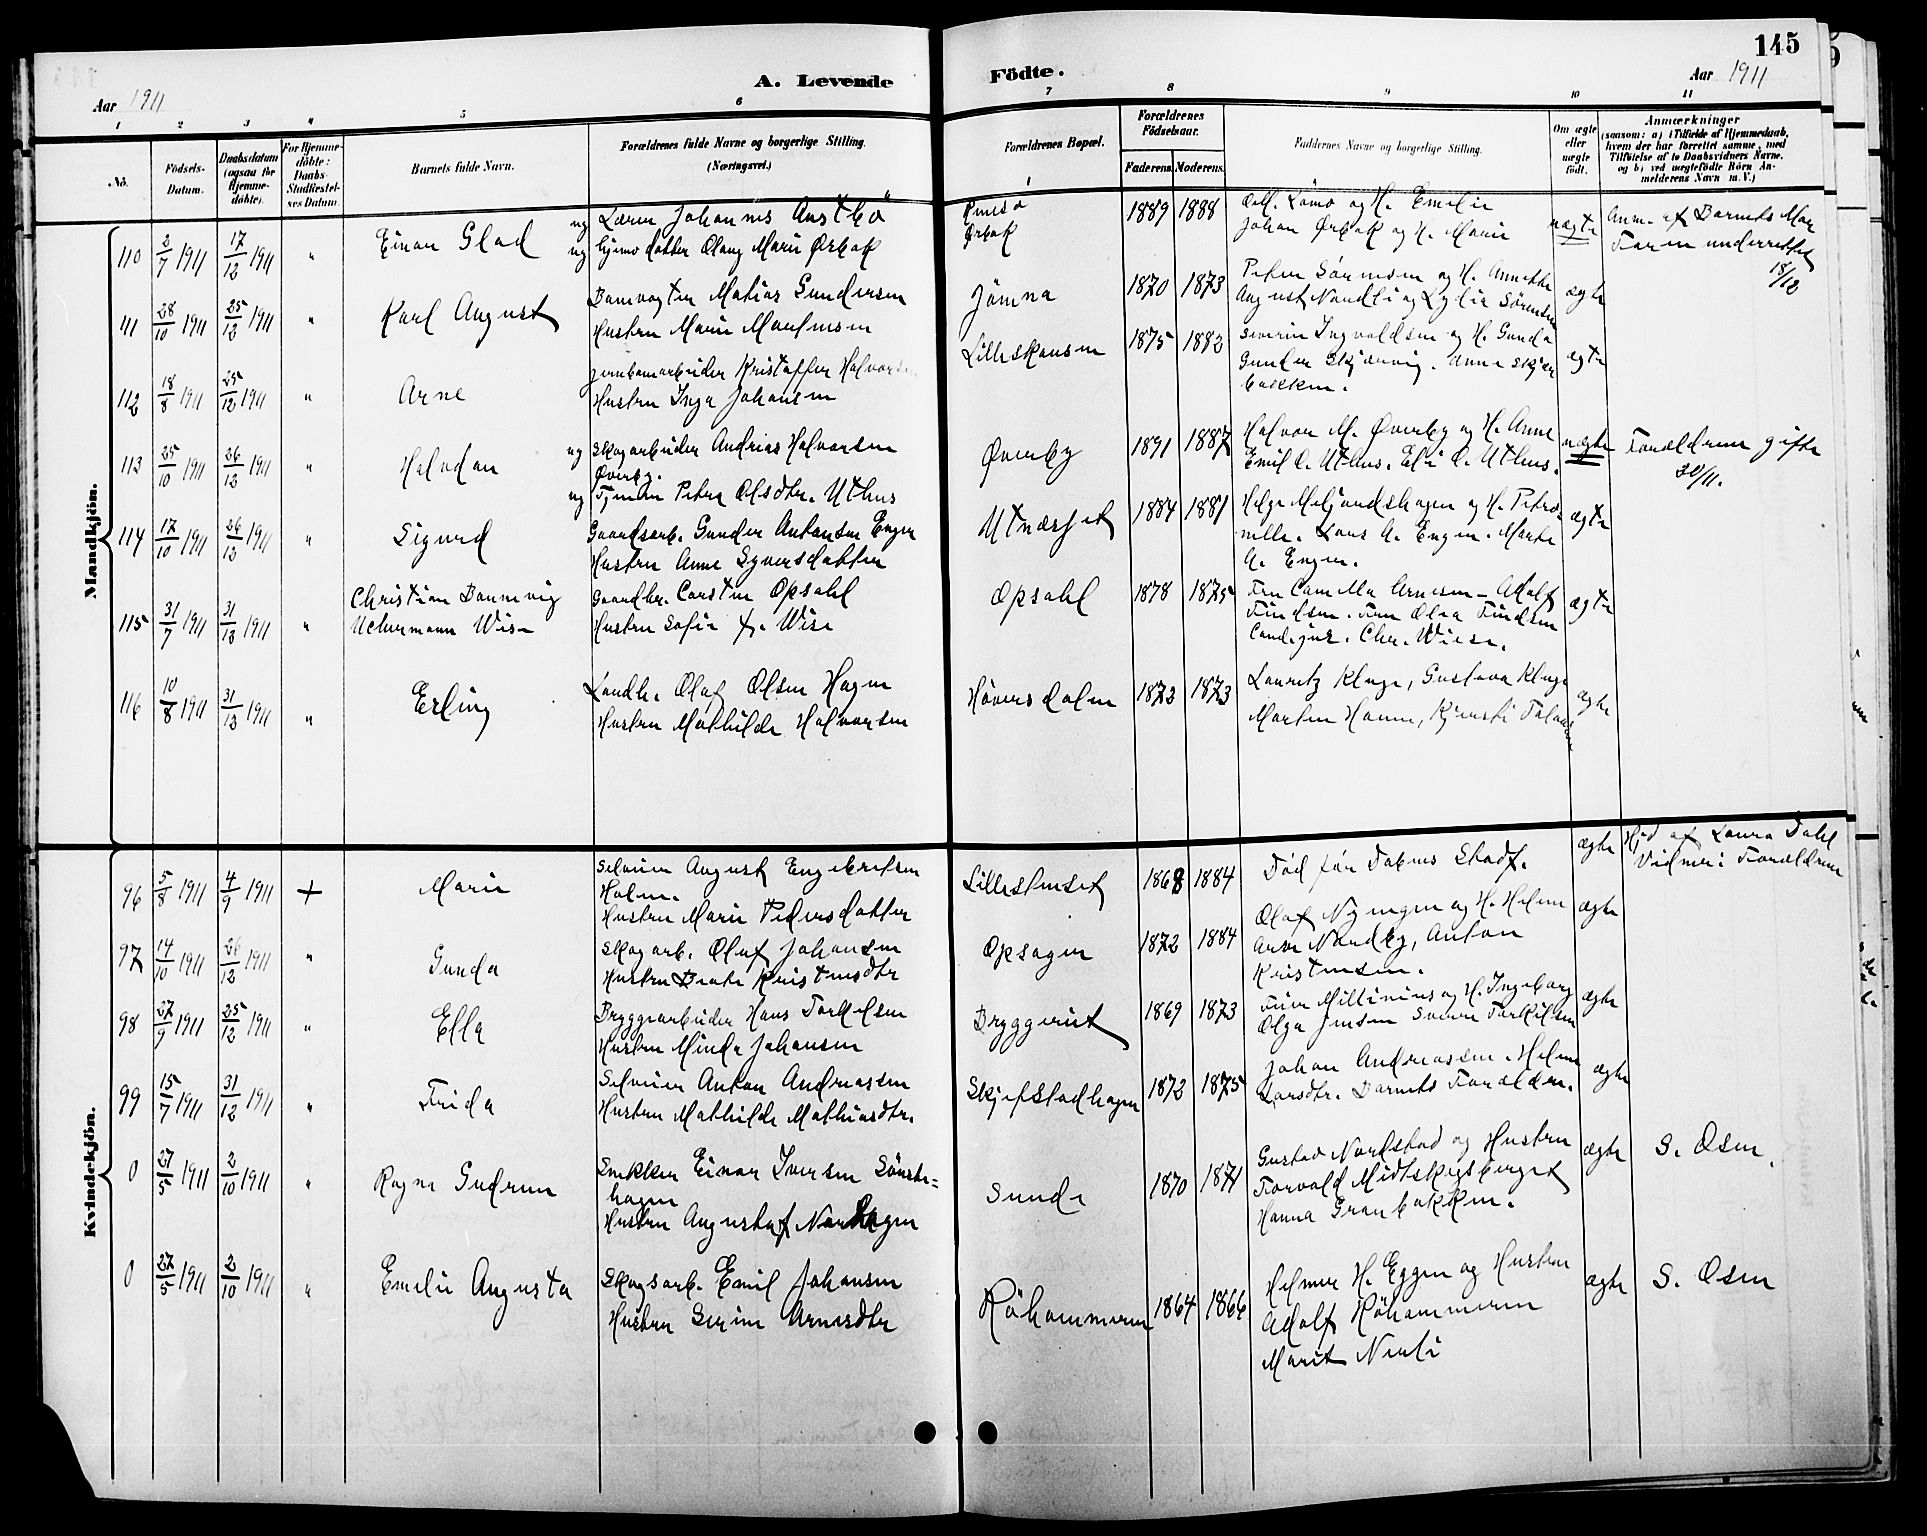 145
A. Levende Födte.
Aar 1911
Aar 1911
1 2 3 4 5 6 7 8 9 10 11
No.
Födsels-
Datum.
Daabsdatum
(ogsaa for
Hjemme-
döbte).
For Hjemme-
döbte:
Daabs-
Stadfæstel-
ses Datum.
Barnets fulde Navn.
Forældrenes fulde Navne og borgerlige Stilling.
(Næringsvei.)
Forældrenes Bopæl.
Forældrenes
Födselsaar.
Faderens. Moderens.
Faddernes Navne og borgerlige Stilling.
Om ægte
eller
uægte
født.
Anmærkninger
(saasom: a) i Tilfælde af Hjemmedaab,
hvem der har forrettet samme, med
Tilföielse af to Daabsvidners Navne,
og b) ved uægtefödte Börn An-
melderens Navn m. V.)
Mandkjön.
110 2/7 1911 17/12 1911 " Einar Glad
ug Lærer Johannes Austbø
ug Gjemv. datter Olaug Marie Ørbæk
Ørbæk
1889 1888
O.M. Lömo og H. Emelie
Johan Ørbæk og H. Marie
uægte
Anm. af Barnets Mor
Faren underrettet
18/12
111 28/10 1911 25/12 1911 " Karl August
Banevogter Matias Gundersen
Hustru Marie Maurensen
Jömna
1870 1873
Peter Sörensen og H. Annette
August Nordli og Lydia Sörensen
ægte
112 18/8 1911 25/12 1911 " Arne
Jernbanearbeider Kristoffer Halvorsen
Hustru Inga Johansen
Lilleskansen
1875 1882
Severin Ingvaldsen og H. Gunda
Gunder Skjærvig. Anne Skjær
bækken.
ægte
113 25/10 1911 26/12 1911 " Halvdan
ug Skogarbeider Andreas Halvorsen
Øverby.
ug Tjener Petra Olsdtr. Uthus
Øverby
1891 1887
Halvor M. Øverby og H. Anne
Emil O. Uthus. Eli O. Uthus.
uægte
Forældrene gifte
30/11.
114 17/10 1911 26/12 1911 " Sigurd
Gaardsarb. Gunder Antonsen Engen
Hustru Anne Syversdatter
Utnæsset
1884 1881
Helge Meljandshagen og H. Petro-
nille. Lars A. Engen. Marte
A. Engen.
ægte
115 31/7 1911 31/12 1911 " Christian Bannevig
Uchermann Wise
Gaardbr. Carsten Opsahl
Hustru Sofie f. Wise
Opsahl
1878 1875
Fru Camilla Arnesen – Adolf
Findsen. Fru Olea Findsen
Cand. jur. Chr. Wiese.
ægte
116 10/8 1911 31/12 1911 " Erling
Landh. Olaf Olsen Hagen
Hustru Mathilde Halvorsen
Höversdalen
1873 1873
Lauritz Kluge, Gustava Kluge
Morten Hanne, Kjersti
ægte
Kvindekjön.
96 5/8 1911 4/9 1911 + Marie
Selveier August Engebretsen
Holen.
Hustru Marie Pedersdatter
Lillestenset
1868 1884
Död før Dabens Stadf.
ægte
Hjd af Laura Dahl
Vidner: Forældrene
97 14/10 1911 26/12 1911 " Gunda
Skogarb. Oluf Johansen
Hustru Beate Kristensdtr
Opsagen
1872 1884
Olaf Nyengen og H. Helene
Arne Nordby, Anton
Kristensen.
ægte
98 27/9 1911 25/12 1911 " Ella
Bryggeriarbeider Hans Torkilsen
Hustru Minda Johansen
Bryggeriet
1869 1873
og H. Ingeborg
Olga Jensen Torkilsen
ægte
99 15/7 1911 31/12 1911 " Frida
Selveier Anton Andreassen
Hustru Mathilde Mathiasdtr.
Skjefstadhagen
1872 1875
Johan Andreassen. Helene
Larsdtr. Barnets Forældre.
ægte
0 27/5 1911 2/10 1911 " Ragna Gudrun
Snekker Einar Iversen Sönste-
hagen
Hustru Augusta f Nordhagen
Sunde
1870 1871
Gustav Nordstad og Hustru
Torvald Midtskogsberget
Hanna Granbakken.
ægte
S. Osen.
0 27/5 1911 2/10 1911 " Emelie Augusta
Skogsarb. Emil Johansen
Hustru Serine Arnesdtr
Röhammeren
1864 1866
Helmer H. Eggen og Hustru
Adolf Röhammeren
Marit Nerli
ægte
S. Osen